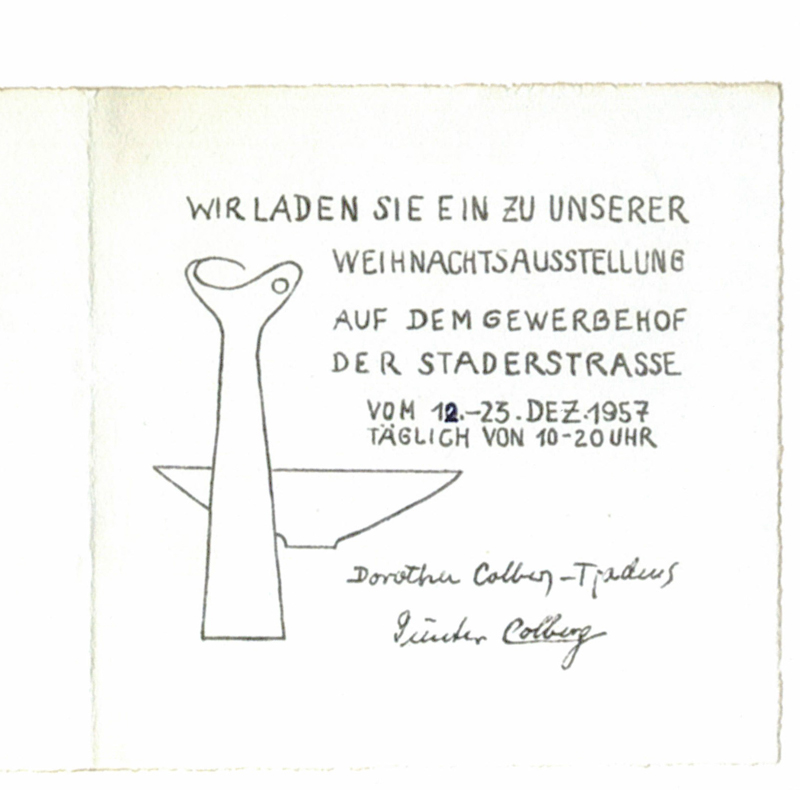 WIR LADEN SIE EIN ZU UNSERER
WEIHNACHTSAUSSTELLUNG
AUF DEM GEWERBEHOF
DER STADERSTRASSE
VOM 12.-23.DEZ.1957
TÄGLICH VON 10-20 UHR
Dorothea Colberg-Tjadens
Günter Colberg